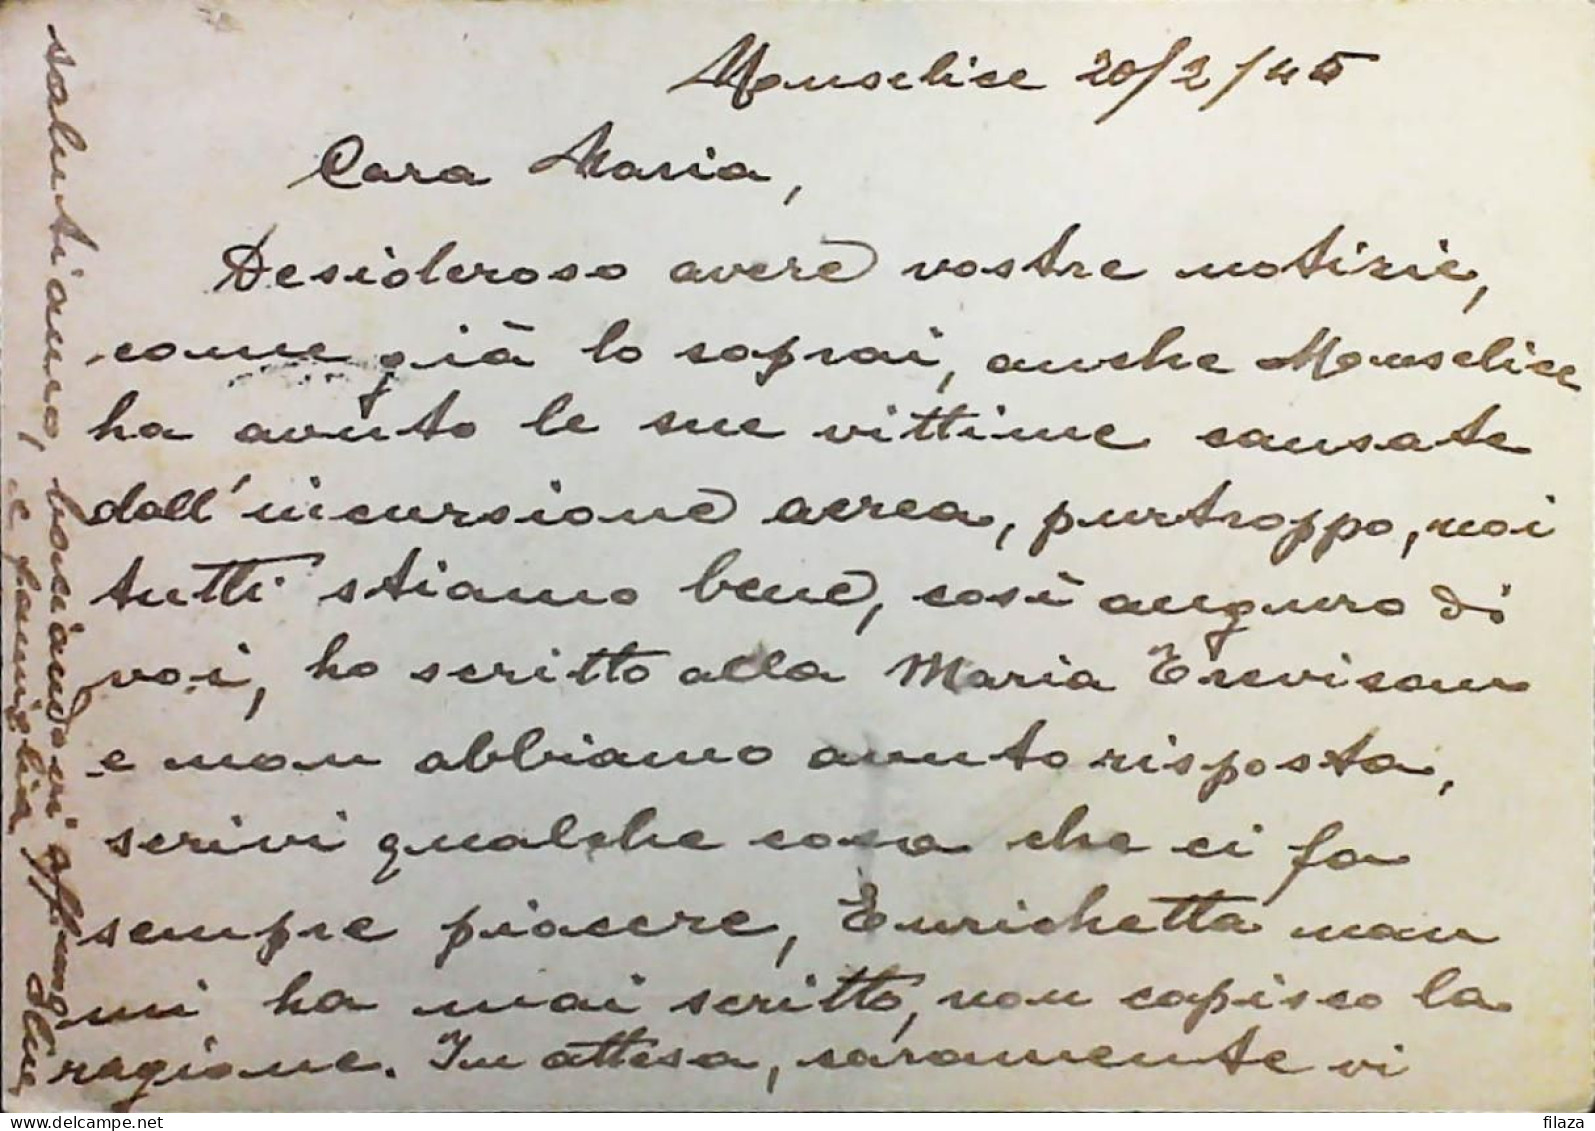 Monselice 20/2/45
Cara Maria,
Desideroso avere vostre notizie,
come già lo saprai, anche Monselice
ha avuto le sue vittime causate
dall'incursione aerea, purtroppo, noi
tutti stiamo bene, così auguro di
voi, ho scritto alla Maria Trevisan
e non abbiamo avuto risposta,
scrivi qualche cosa che ci fa
sempre piacere, Enrichetta non
mi ha mai scritto, non capisco la
ragione. In attesa, caramente vi
salutiamo, baciandovi
e famiglia
filaza